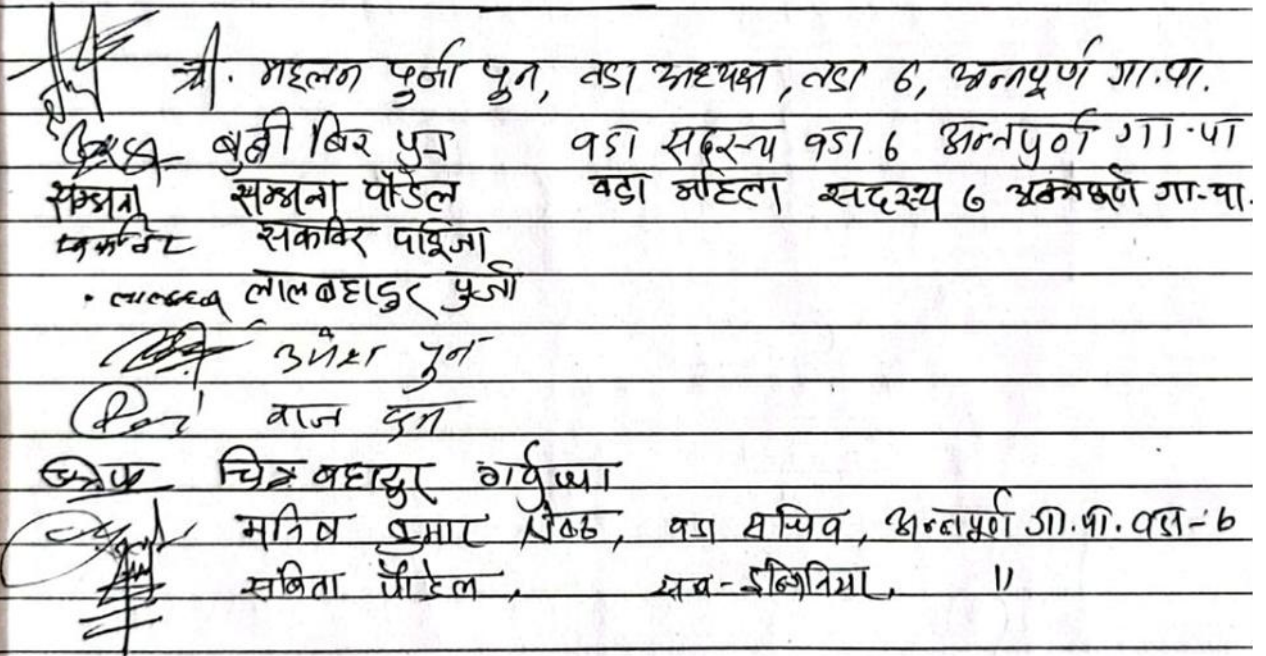 श्री. महलन पुर्जा पुन, वडा अध्यक्ष, वडा 6, अन्नपूर्ण गा.पा.
बुद्धी बिर पुन वडा सदस्य वडा 6 अन्नपुर्ण गा.पा
सम्झना सम्झना पौडेल वडा महिला सदस्य 6 अन्नपूर्ण गा.पा.
सकविर सकविर पाईजा
लालबहादुर पुर्जा
उमेश पुन
वाज पुन
चित्र बहादुर गर्बुजा
कुमार वडा सचिव, अन्नपूर्ण गा.पा. वडा-6
सबिता पौडेल, सब-ईन्जिनियर, ॥